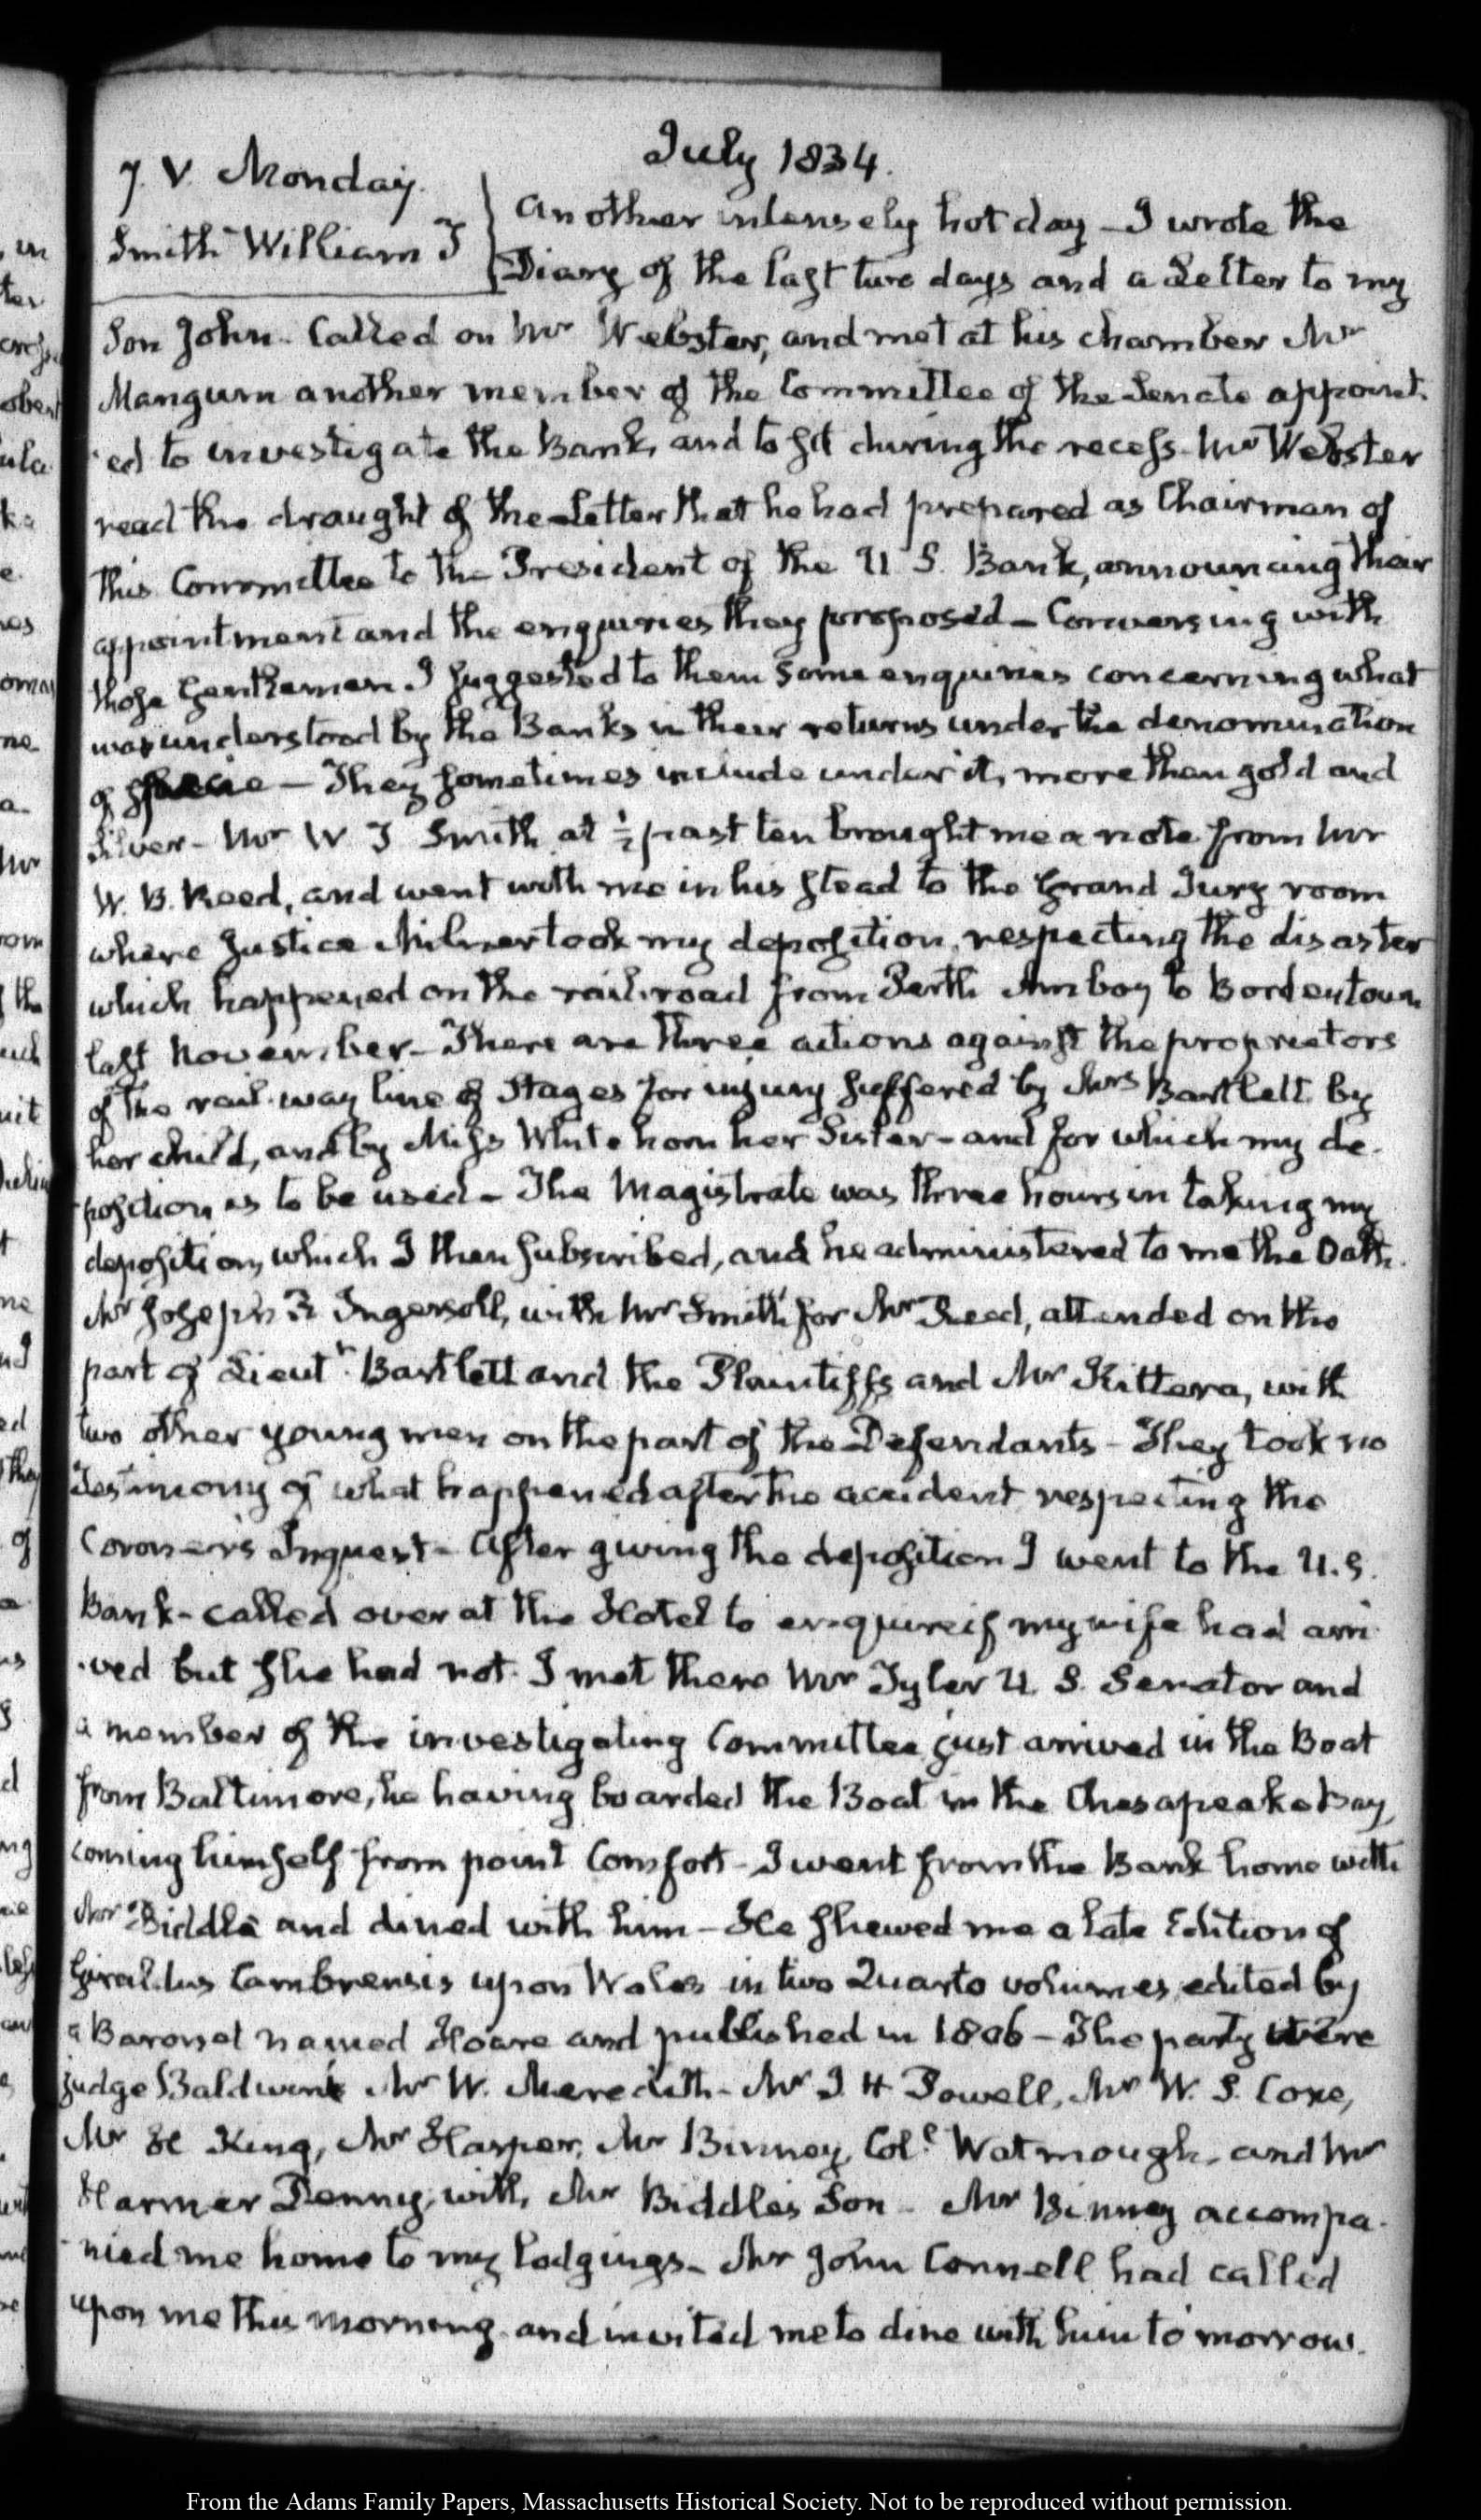 July 1834.
7. V. Monday.
Smith William J
Another intensely hot day – I wrote the
Diary of the last two days and a Letter to my
Son John. Called on Mr Webster, and met at his chamber Mr
Mangum another member of the Committee of the Senate appoint-
-ed to investigate the Bank, and to sit during the recess. Mr Webster
read the draught of the Letter that he had prepared as Chairman of
this Committee to the President of the U S. Bank, announcing their
appointment and the enquiries they proposed – Conversing with
those Gentlemen I suggested to them some enquiries concerning what
was understood by the Banks in their returns under the denomination
of specie – They sometimes include under it, more than gold and
Silver – Mr W J Smith at ½ past ten brought me a note from Mr
W. B. Reed, and went with me in his stead to the Grand Jury room
where Justice Milnor took my deposition, respecting the disaster
which happened on the rail-road from Perth Amboy to Bordentown
last November – There are three actions against the proprietors
of the rail-way line of Stages for injury suffered by Mrs Bartlett by
her child, and by Miss Whitehorn her Sister – and for which my de-
-position is to be used – The Magistrate was three hours in taking my
deposition, which I then subscribed, and he administered to me the Oath.
Mr Joseph R Ingersoll, with Mr Smith for Mr Reed, attended on the
part of Lieutt Bartlett and the Plaintiffs and Mr Kittera, with
two other young men on the part of the Defendants – They took no
Testimony of what happened after the accident respecting the
Coroner's Inquest – After giving the deposition I went to the U.S.
Bank – called over at the Hotel to enquire if my wife had arri-
-ved but she had not. I met there Mr Tyler U. S. Senator and
a member of the investigating Committee just arrived in the Boat
from Baltimore, he having boarded the Boat in the Chesapeake Bay,
coming himself from point Comfort – I went from the Bank home with
Mr Biddle and dined with him – He shewed me a late Edition of
Giraldus Cambrensis upon Wales in two Quarto volumes, edited by
a Baronet named Hoare and published in 1806 – The party were
judge Baldwin Mr W. Meredith – Mr J. H Powell, Mr W. S. Coxe,
Mr H King, Mr Harper, Mr Binney, Coll Watmough, and Mr
Harmar Denny, with Mr Biddles Son – Mr Binney accompa-
-nied me home to my lodgings – Mr John Connell had called
upon me this morning and invited me to dine with him to morrow.
From the Adams Family Papers, Massachusetts Historical Society. Not to be reproduced without permission.